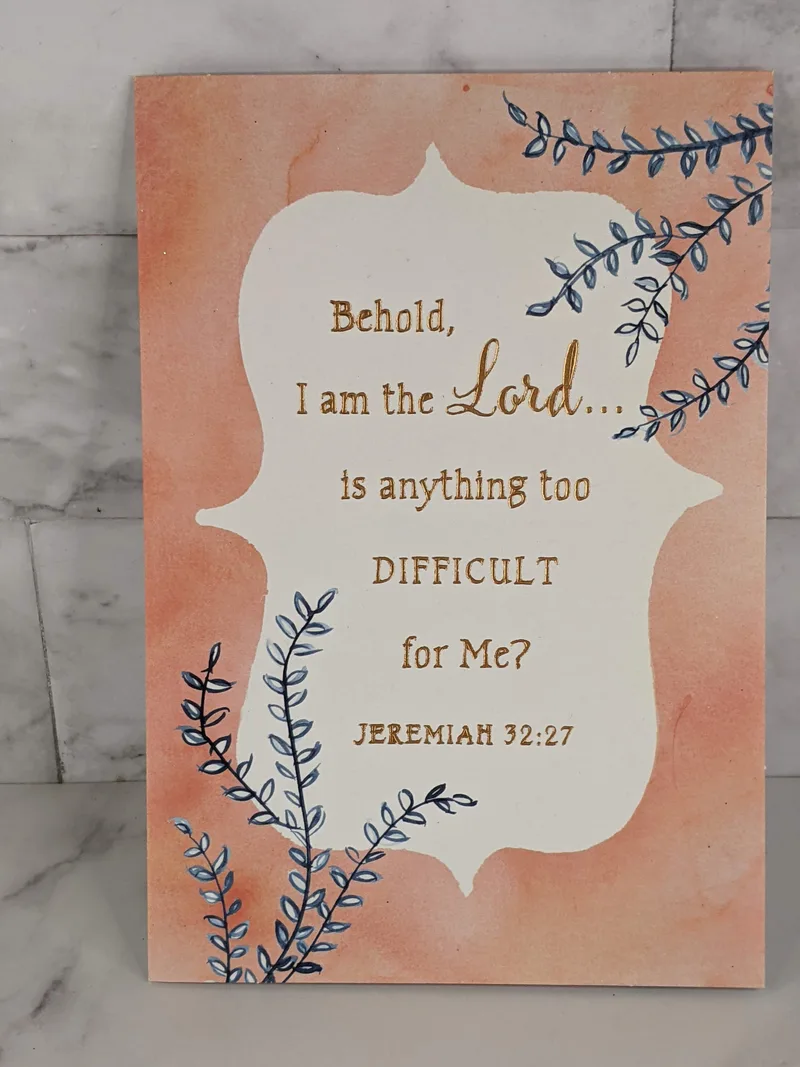 Behold,
I am the Lord...
is anything too
DIFFICULT
for Me?
JEREMIAH 32:27